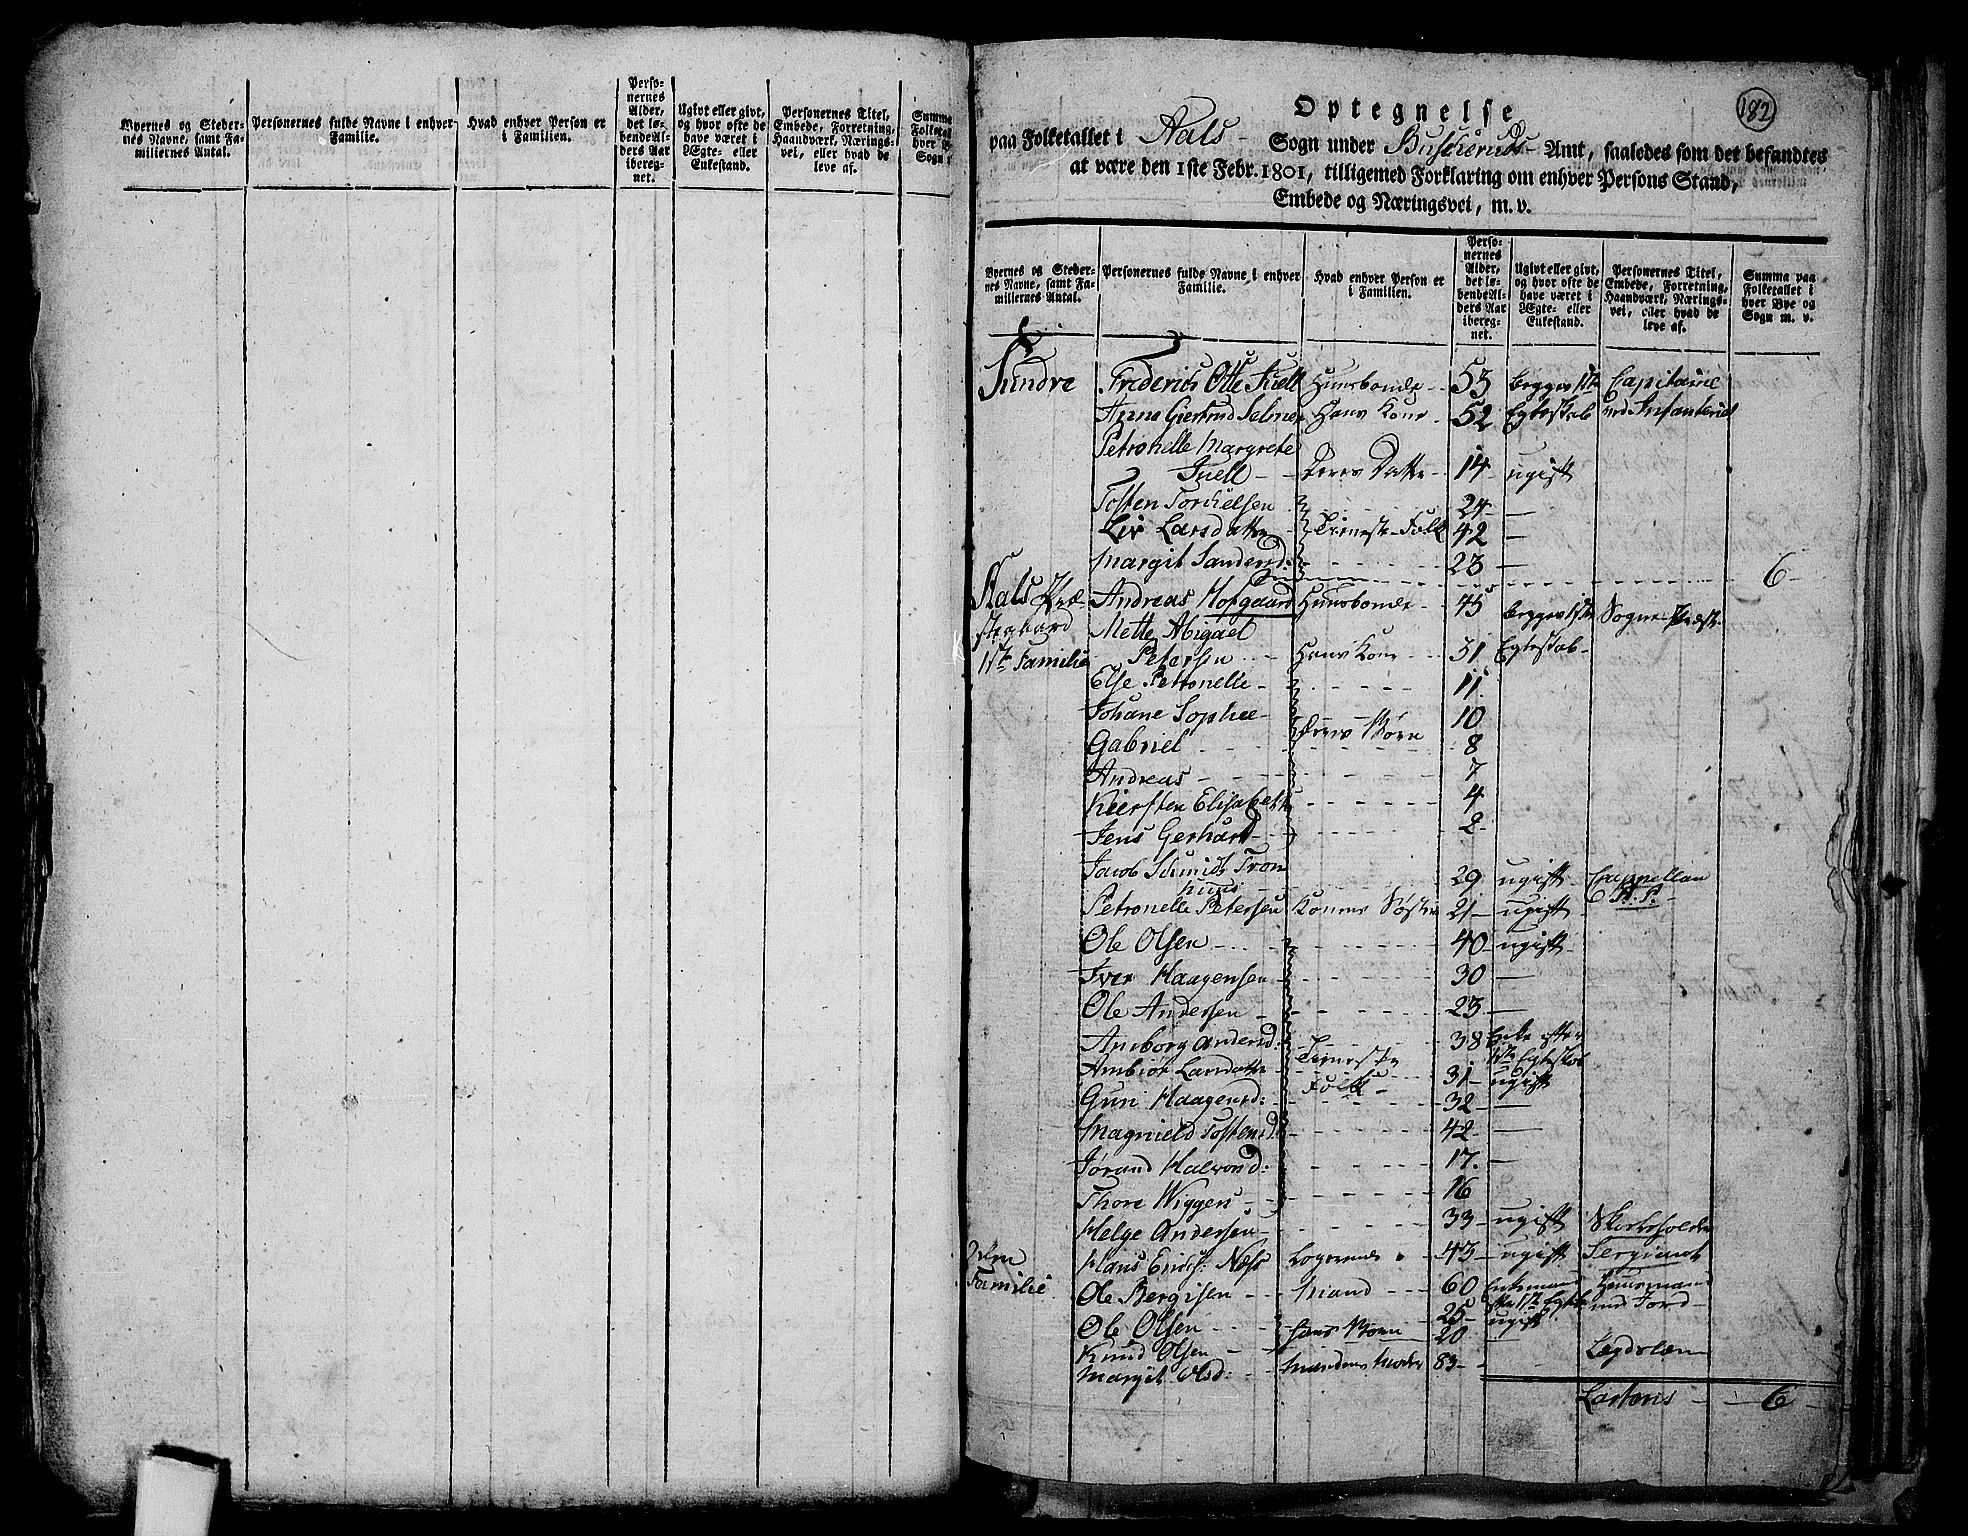 Byernes og Steder-
nes Navne, samt Fa-
miliernes Antal.
Personernes fulde Navne i enhver
Familie.
Hvad enhver Person er
i Familien.
Perso-
nernes
Alder,
det lø-
bende Al-
ders Aar
ibereg-
net.
Ugivt eller givt,
og hvor ofte de
have været i
Ægte- eller
Enkestand.
Personernes Titel,
Embede, Forretning,
Haandværk, Nærings-
vei, eller hvad de
leve af.
Summa
Folketall
hver B
Sogn
182
Optegnelse
paa Folketallet i Aals Sogn under Buskeruds Amt, saaledes som det befandtes
at være den 1ste Febr. 1801, tilligemed Forklaring om enhver Persons Stand,
Embede og Næringsvei, m. v.
Byernes og Steder-
nes Navne, samt Fa-
miliernes Antal.
Personernes fulde Navne i enhver
Familie.
Hvad enhver Person er
i Familien.
Perso-
nernes
Alder,
det lø-
bende Al-
ders Aar
ibereg-
net.
Ugivt eller givt,
og hvor ofte de
have været i
Ægte- eller
Enkestand.
Personernes Titel,
Embede, Forretning,
Haandværk, Nærings-
vei, eller hvad de
leve af.
Summa paa
Folketallet i
hver Bye og
Sogn m. v.
Sundre Frederich Otte Juell Huusbonde 53 begge 1ste Capitaine
Anna Giertrud Selmer Hans Kone 52 Egteskab ved Infanteriet
Petronelle Margrete
Juell Deres Datter 14 ugift
Tosten Torchelsen 24 —
Liv Larsdatter Tieneste Folk 42 —
Margit Sandersd: 23 — 6
Aals Præ- Andreas Hofgaard Huusbonde 45 begge 1ste Sogne Præst
stegaard Mette Abigael
1ste Familie Petersen Hans Kone 31 Egteskab
Else Petronelle 11
Johane Sophie 10
Gabriel Deres Børn 8
Andreas 7
Kiersten Elisabeth 4
Jens Gerhard 2
Jacob Schmidt Tron
huus 29 ugift Cappellan
Petronelle Petersen Konens Søster 21 ugift
Ole Olsen 40 ugift
Iver Haagensen 30 —
Ole Andersen 23 —
Anborg Andersd: 38 Enke efter
Ambiør Larsdatter Tieneste 31 1ste Egteskab
Guri Haagensd: Folk 32 ugift
Magnield Tostensd: 42 —
Jørand Halvorsd: 17 —
Thore Wiggers 16
Helge Andersen 33 ugift Skoleholder
2den Hans Erichs: Næss Logerende 43 ugift Sergiant
Familie Ole Bergisen Mand 60 Enkemand Huusmand
efter 1ste Egte med Jord
Ole Olsen 25 ugift
Knud Olsen hans Børn 20 —
Margit Olsd: Mandens Moder 83 Lægdslem
Lateris 6